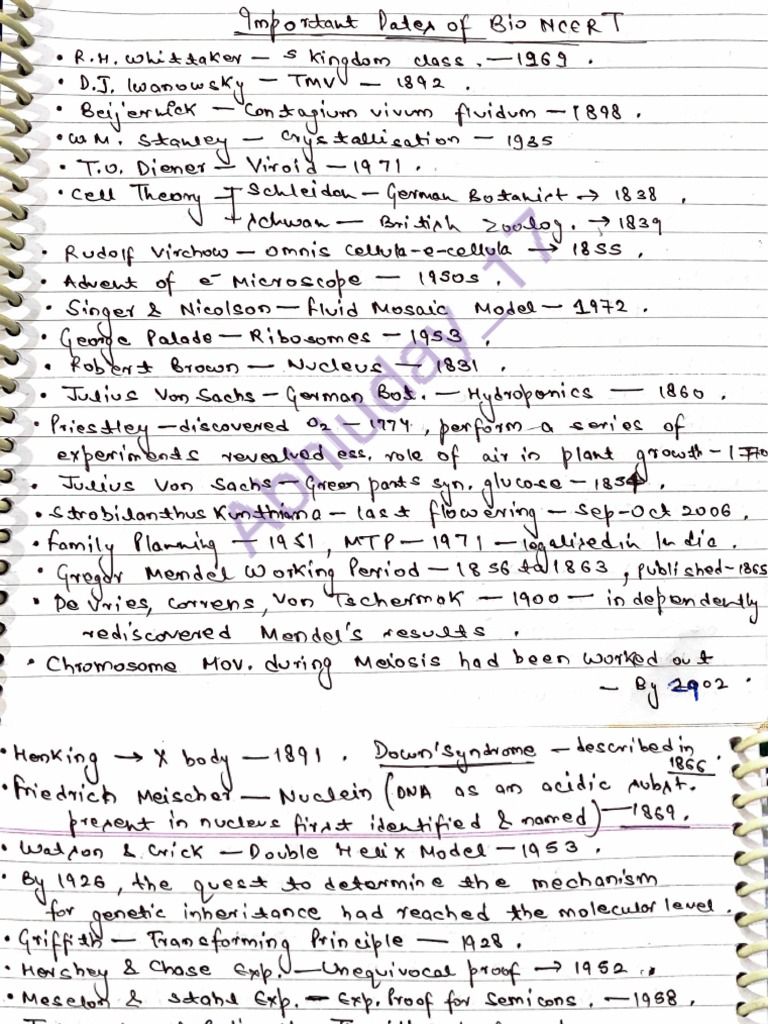 Important Dates of Bio NCERT
• R.H. Whittaker – 5 kingdom class. – 1969.
• D.J. Iwanowsky – TMV – 1892.
• Beijernick – Contagium vivum fluidum – 1898.
• W.M. Stanley – Crystallisation – 1935
• T.O. Diener – Viroid – 1971.
• Cell Theory Schleiden – German Botanist → 1838,
Schwan – British Zoolog. → 1839
• Rudolf Virchow – Omnis cellula-e-cellula → 1855,
• Advent of e⁻ Microscope – 1950s.
• Singer & Nicolson – Fluid Mosaic Model – 1972.
• George Palade – Ribosomes – 1953.
• Robert Brown – Nucleus – 1831.
• Julius Von Sachs – German Bot. – Hydroponics – 1860.
• Priestley – discovered O2 – 1774, perform a series of
experiments revealed ess. role of air in plant growth – 1770
• Julius Von Sachs – Green parts syn. glucose – 1854.
• Strobilanthus Kunthiana – last flowering – Sep-Oct 2006.
• Family Planning – 1951, MTP – 1971 – legalised in India.
• Gregor Mendel Working Period – 1856 to 1863, published – 1865
• De Vries, Correns, Von Tschermak – 1900 – independently
rediscovered Mendel's results.
• Chromosome Mov. during Meiosis had been worked out
– By 1902.
Abhiuday_17
• Henking → X body – 1891. Down'Syndrome – described in
1866.
• Friedrich Meischer – Nuclein (DNA as an acidic subst.
present in nucleus first identified & named) – 1869.
• Watson & Crick – Double Helix Model – 1953.
• By 1926, the quest to determine the mechanism
for genetic inheritance had reached the molecular level.
• Griffith – Transforming Principle – 1928.
• Hershey & Chase Exp. – Unequivocal proof → 1952.
• Meselon & Stahl Exp. – Exp. Proof for semicons. – 1958.